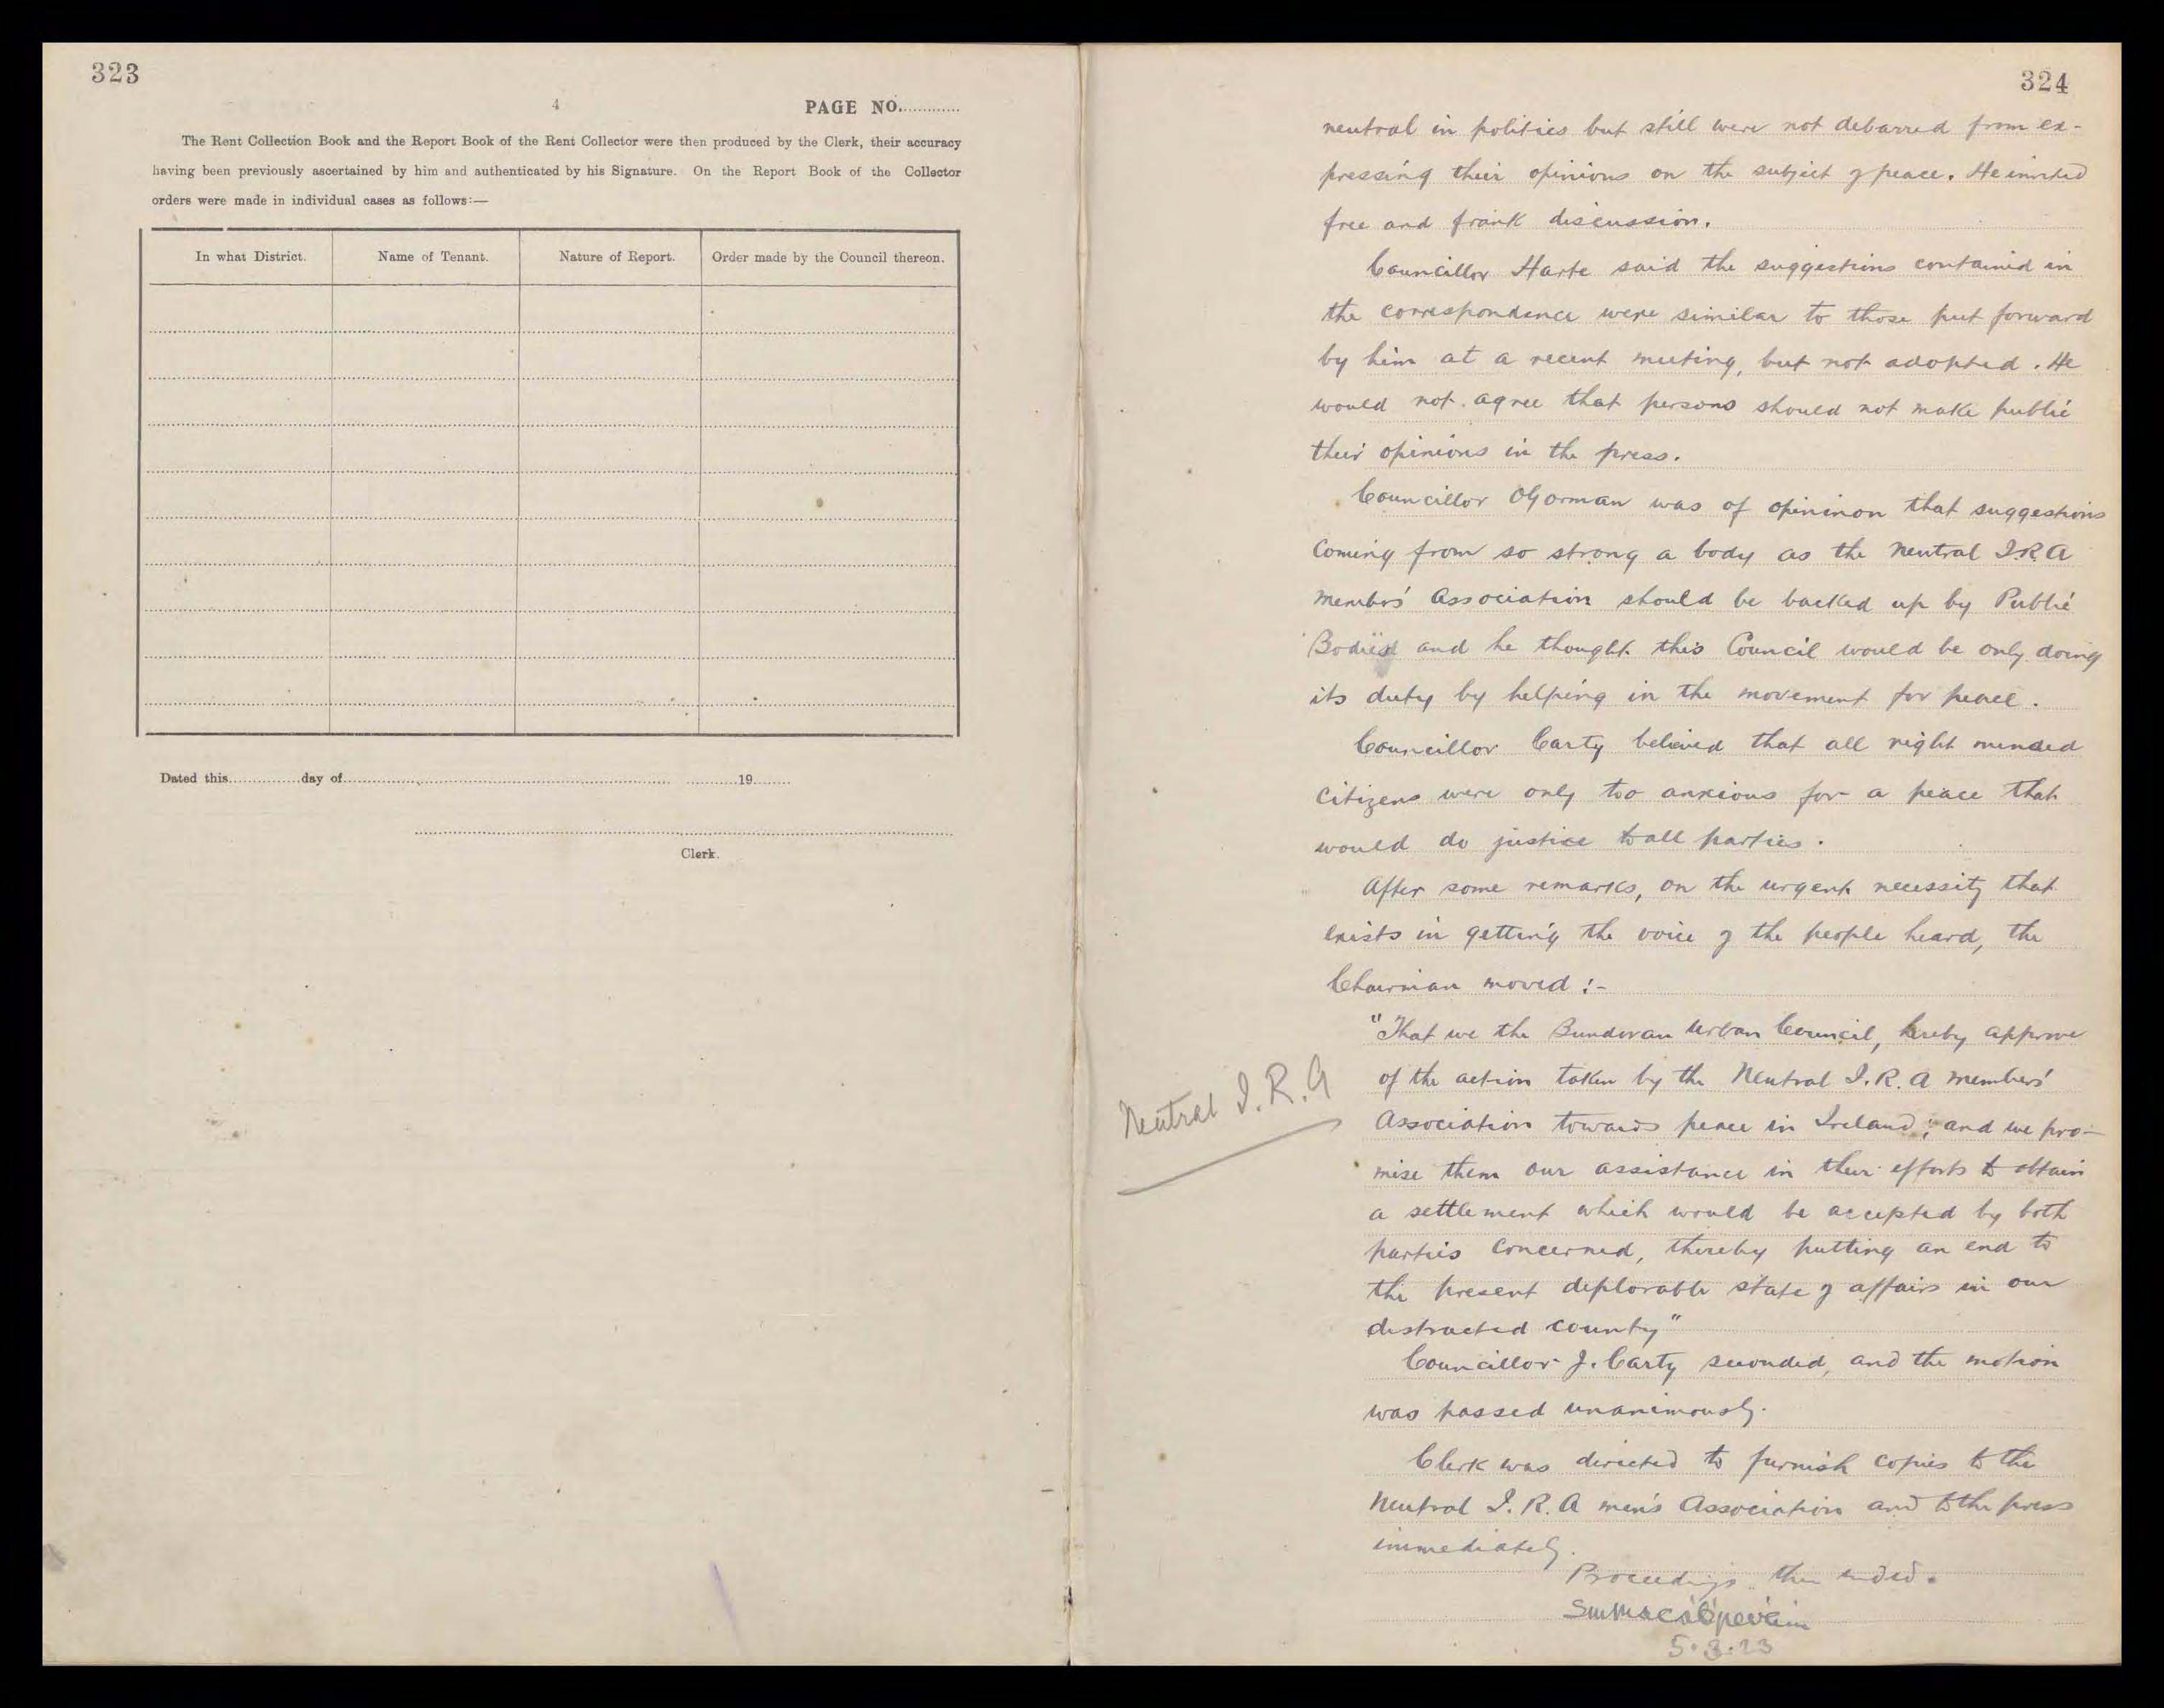 323
4
PAGE NO.............
The Rent Collection Book and the Report Book of the Rent Collector were then produced by the Clerk, their accuracy
having been previously ascertained by him and authenticated by his Signature. On the Report Book of the Collector
orders were made in individual cases as follows:—
In what District. Name of Tenant. Nature of Report. Order made by the Council thereon.
Dated this...............day of.......................................................................... ...........19........
Clerk.
324
neutral in politics but still were not debarred from ex-
pressing their opinions on the subject of peace. He invited
free and frank discussion.
Councillor Harte said the suggestions contained in
the correspondence were similar to those put forward
by him at a recent meeting, but not adopted. He
would not agree that persons should not make public
their opinions in the press.
Councillor OGorman was of opininon that suggestions
coming from so strong a body as the Neutral I.R.A
Members' Association should be backed up by Public
Bodies and he thought this Council would be only doing
its duty by helping in the movement for peace.
Councillor Carty believed that all right minded
citizens were only too anxious for a peace that
would do justice to all parties.
After some remarks, on the urgent necessity that
exists in getting the voice of the people heard, the
Chairman moved :-
"That we the Bundoran Urban Council, hereby approve
of the action taken by the Neutral I.R.A members'
Neutral I.R.A
Association towards peace in Ireland; and we pro-
mise them our assistance in their efforts to obtain
a settlement which would be accepted by both
parties concerned, thereby putting an end to
the present deplorable state of affairs in our
distracted county"
Councillor J. Carty seconded, and the motion
was passed unanimously.
Clerk was directed to furnish copies to the
Neutral I.R.A men's Association and to the press
immediately.
Proceedings then ended.
5.3.23